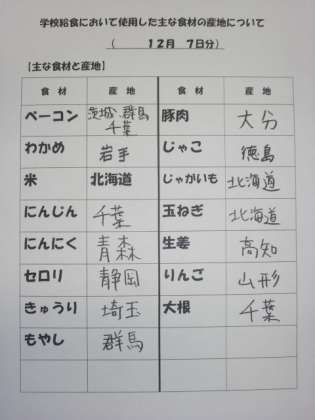 学校給食において使用した主な食材の産地について
(　12月　7日分)
【主な食材と産地】
食材 産地 食材 産地
ベーコン 茨城、群馬 千葉 豚肉 大分
わかめ 岩手 じゃこ 徳島
米 北海道 じゃがいも 北海道
にんじん 千葉 玉ねぎ 北海道
にんにく 青森 生姜 高知
セロリ 静岡 りんご 山形
きゅうり 埼玉 大根 千葉
もやし 群馬